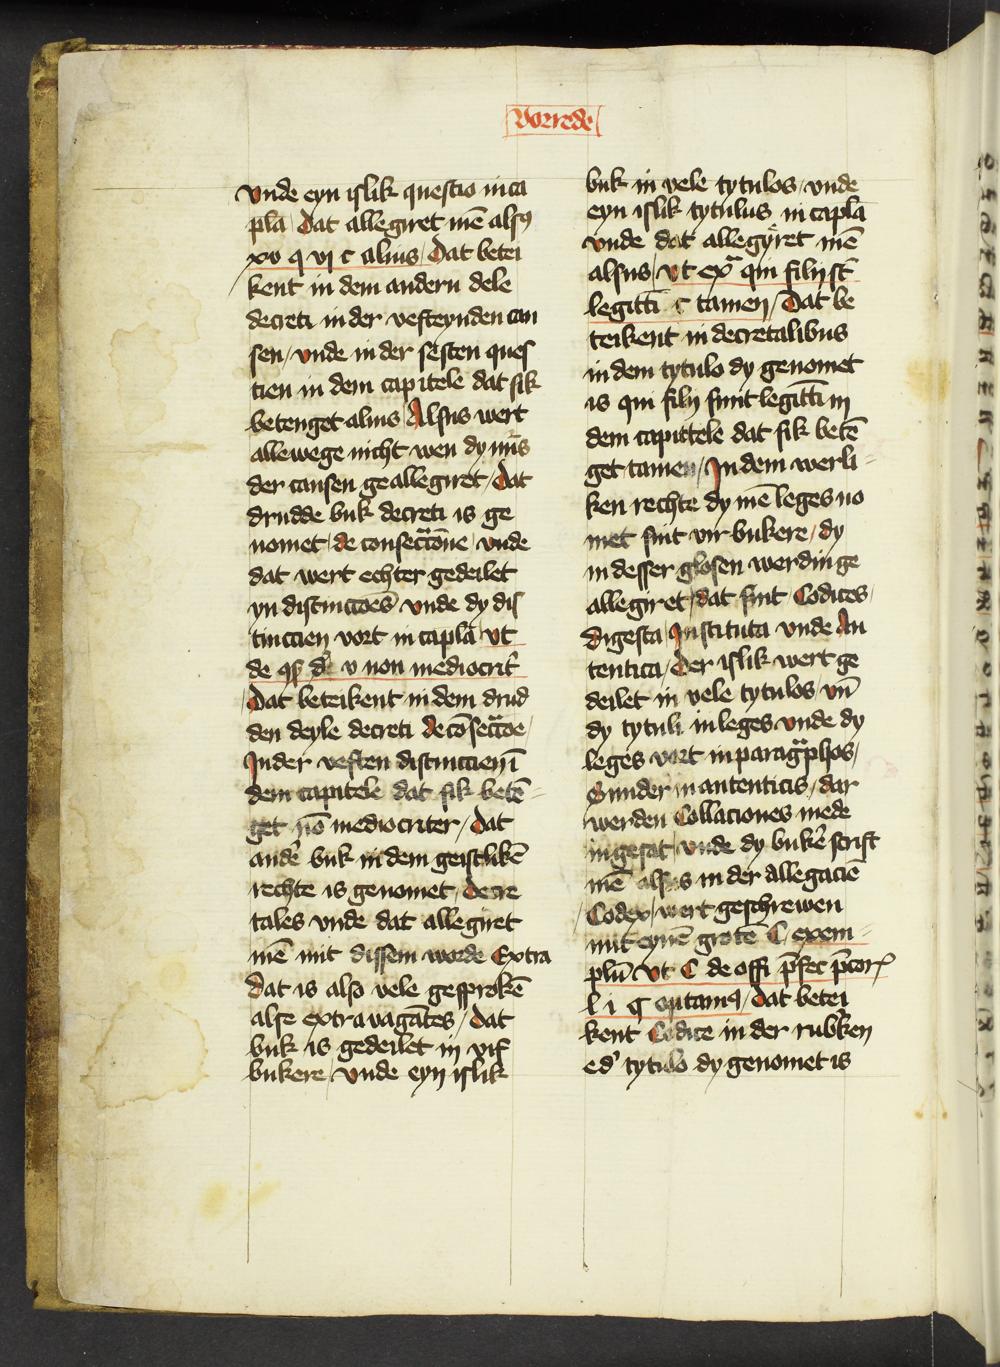 Vorrede
vnde eyn islik questio in ca
pla / Dat allegiret mē alsꝰ
xv q vj c alius / Dat betei
kent in dem andern dele
decreti in der vefteynden cau
sen / vnde in der sesten ques
tien in dem capitele dat sik
betenget alius Alsus wert
allewege nicht wen dy
der causen geallegiret / Dat
drudde buk decreti is ge
nomet de consecracōne vnde
dat wert echter gedeilet
yn distinccōes vnde dy dis
tinccien vort in capla vt
de v non mediocrit
Dat beteikent in dem drud
den deyle decreti de cōsecracōe /
In der veften distinccien ī
dem capitele dat sik betē
get nō mediocriter / Dat
andē buk in dem geistlikē
rechte is genomet Decre
tales vnde dat allegiret
mē mit dissem worde Extra
Dat is also vele gesprokē
alse extrauagātes / Dat
buk is gedeilet in vif
bukere / vnde eyn islik
buk in vele tytulos / vnde
eyn islik tytulus in capla
vnde dat allegyret mē
alsus / vt exᵃ qui filij st̄
legitti c tamen / Dat be
teikent in decretalibus
in dem tytulo dy genomet
is qui filij sunt legittī in
dem capittele dat sik betē
get tamen / In dem werli
ken rechte dy mē leges no
met sint vir bukere / dy
in desser glosen werdin ge
allegiret / dat sint Codices /
digesta / Instituta vnde Au
tentica / Der islik wert ge
deilet in vele tytulos / vn̄
dy tytuli in leges vnde dy
leges vort in paragᵃphos /
Sunder in autenticis / dar
werden Collaciones mede
in gesat / vnde dy bukē scrift
mē alsus in der allegaciē
Codex / wert geschrewen
mit eynē grotē C / exem
plū vt C de offi p̄fec p̄tor
l i / Dat betei
kent Codice in der rubrken
tytulo dy genomet is